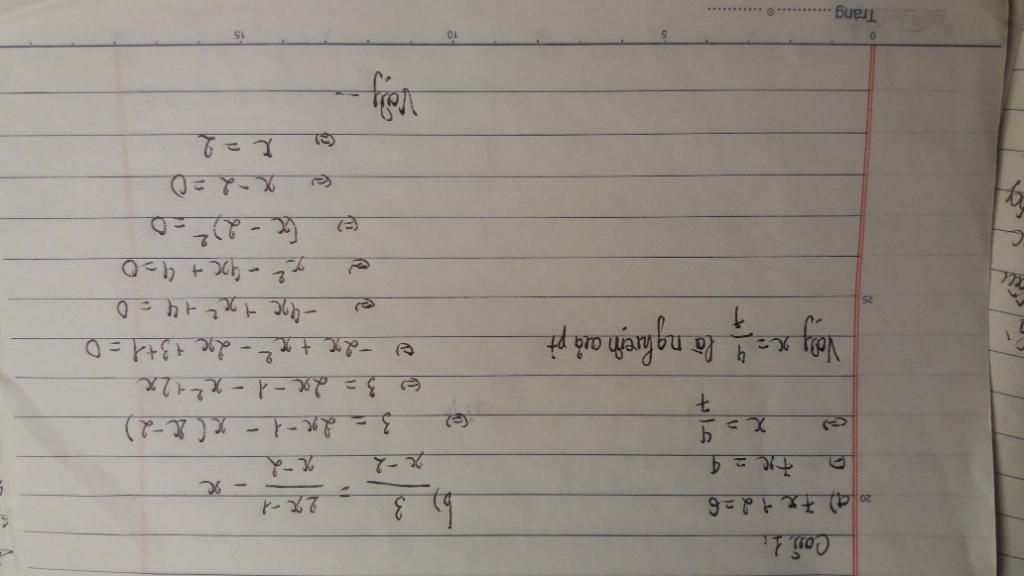 Trang
Câu 1:
a) 7x + 2 = 6
⇔ 7x = 4
⇔ x = 4/7
Vậy x = 4/7 là nghiệm của pt
b) 3/(x-2) = (2x-1)/(x-2) - x
⇔ 3 = 2x - 1 - x(x-2)
⇔ 3 = 2x - 1 - x² + 2x
⇔ -2x + x² - 2x + 3 + 1 = 0
⇔ -4x + x² + 4 = 0
⇔ x² - 4x + 4 = 0
⇔ (x - 2)² = 0
⇔ x - 2 = 0
⇔ x = 2
Vậy -
0 5 10 15
20
25